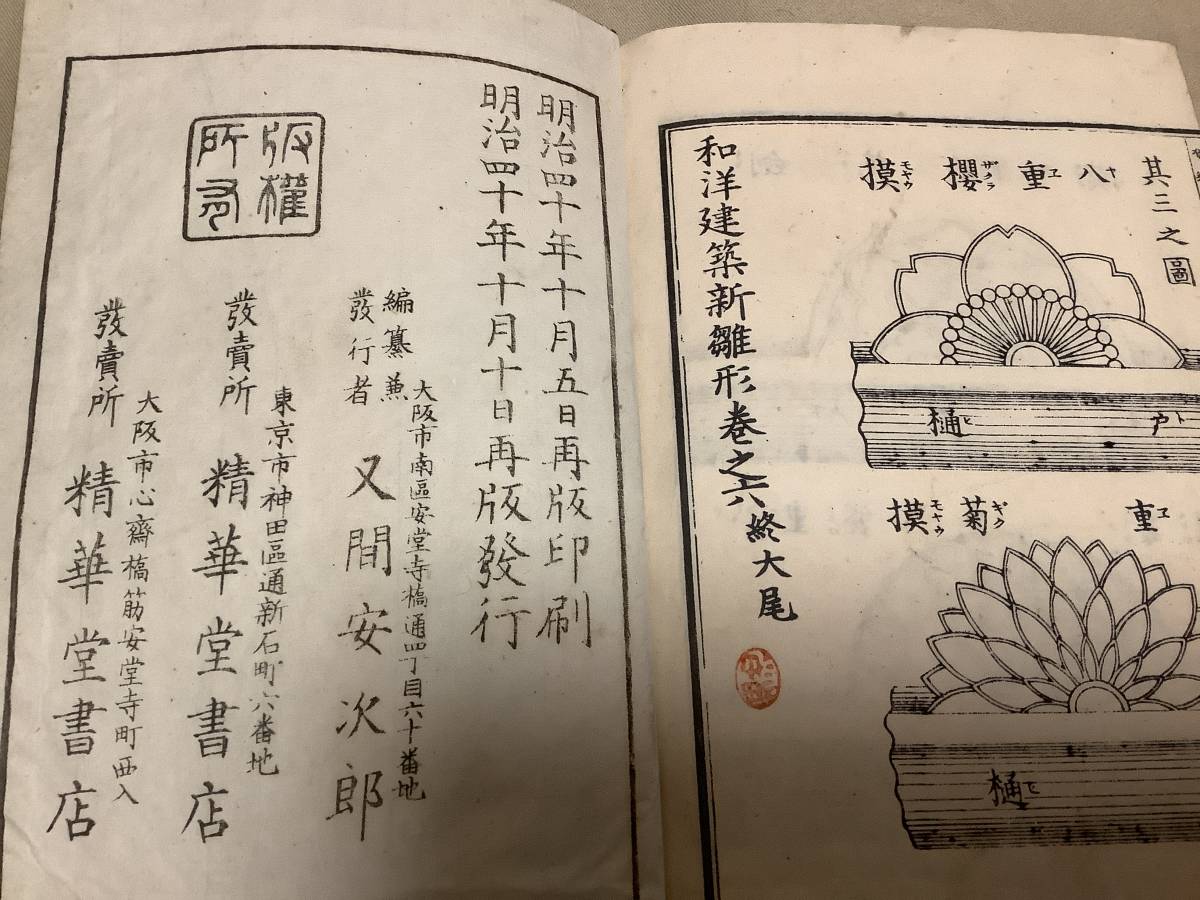 其三之圖
八重櫻摸
ヤヱザクラモヤウ
戸樋
トヒ
重菊摸
ヱギクモヤウ
樋
ヒ
和洋建築新雛形卷之六終大尾
明治四十年十月五日再版印刷
明治四十年十月十日再版發行
大阪市南區安堂寺橋通四丁目六十番地
編纂兼
發行者
又間安次郎
東京市神田區通新石町六番地
發賣所 精華堂書店
大阪市心齋橋筋安堂寺町西入
發賣所 精華堂書店
版權
所有